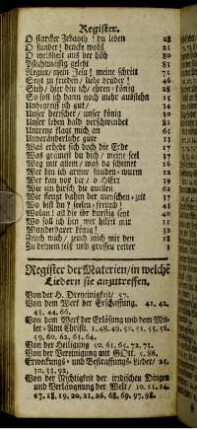 Register.
O starcker Zebaoth! du leben 28
O sünder! dencke wohl 21
O weißheit aus der höh 80
Psalmmäßig geleht 31
Regier/mein Jesu! meine schritt 75
Seyd zu frieden/liebe brüder! 46
Sieh/hier bin ich/ehren-könig 28
So soll ich dann noch mehr ausstehn 15
Unbegreiflich gut/ 14
Unser herrscher/unser könig 10
Unser leben bald verschwindet 21
Untreue klagt mich an
Unveränderliche güte 13
Was erhebt sich doch die Erde 17
Was grämest du dich/meine seel 17
Weg mit allem/was da scheinet 16
Wer bin ich armer sünden-wurm 12
Wer kan vor dir/o HErr
Wie ein hirsch die quellen 62
Wie fleugt dahin der menschen-zeit 17
Wo bist du/seelen-freund!
Wolan! all die ihr durstig seyd 20
Wo soll ich hin/wer hilfet mir 11
Wunderbarer könig! 32
Zeuch mich/zeuch mich mit den 28
Zu deinem fels und grossen retter 3
Register der Materien/in welche
Liedern sie anzutreffen.
Von der H. Dreyeinigkeit/ 57.
Von dem Werk der Erschaffung. 41. 42,
43. 44. 66.
Von dem Werk der Erlösung und dem Mit-
ler-Amt Christi. 1. 48. 49. 50. 51. 55. 58.
59. 60. 62. 63. 64.
Von der Heiligung 40. 61. 65. 72. 71.
Von der Vereinigung mit GOtt. 5. 88.
Erweckungs- und Bestraffungs-Lieder/ 25.
30. 33. 92.
Von der Nichtigkeit der irdischen Dingen
und Verläugnung der Welt/ 10. 11. 14.
17. 18. 19. 20. 21. 26. 68. 69. 97. 98.